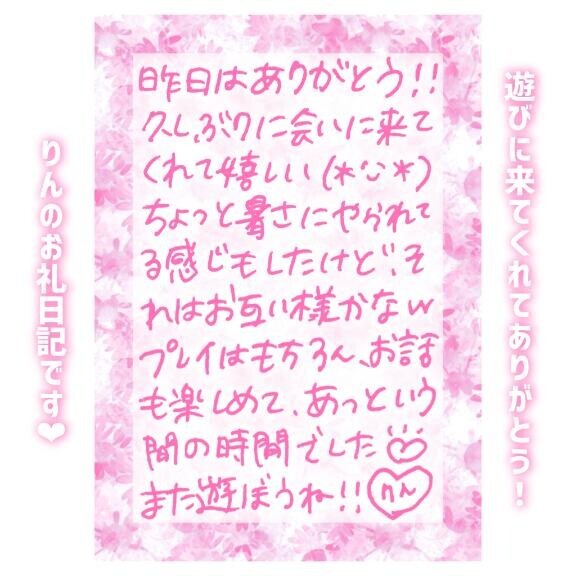 遊びに来てくれてありがとう！
昨日はありがとう!!
久しぶりに会いに来て
くれて嬉しい(*ᴗ*)
ちょっと暑さにやられて
る感じもしたけど、そ
れはお互い様かなw
プレイはもちろん、お話
も楽しめて、あっという
間の時間でした
また遊ぼうね!! りん
りんのお礼日記です❤